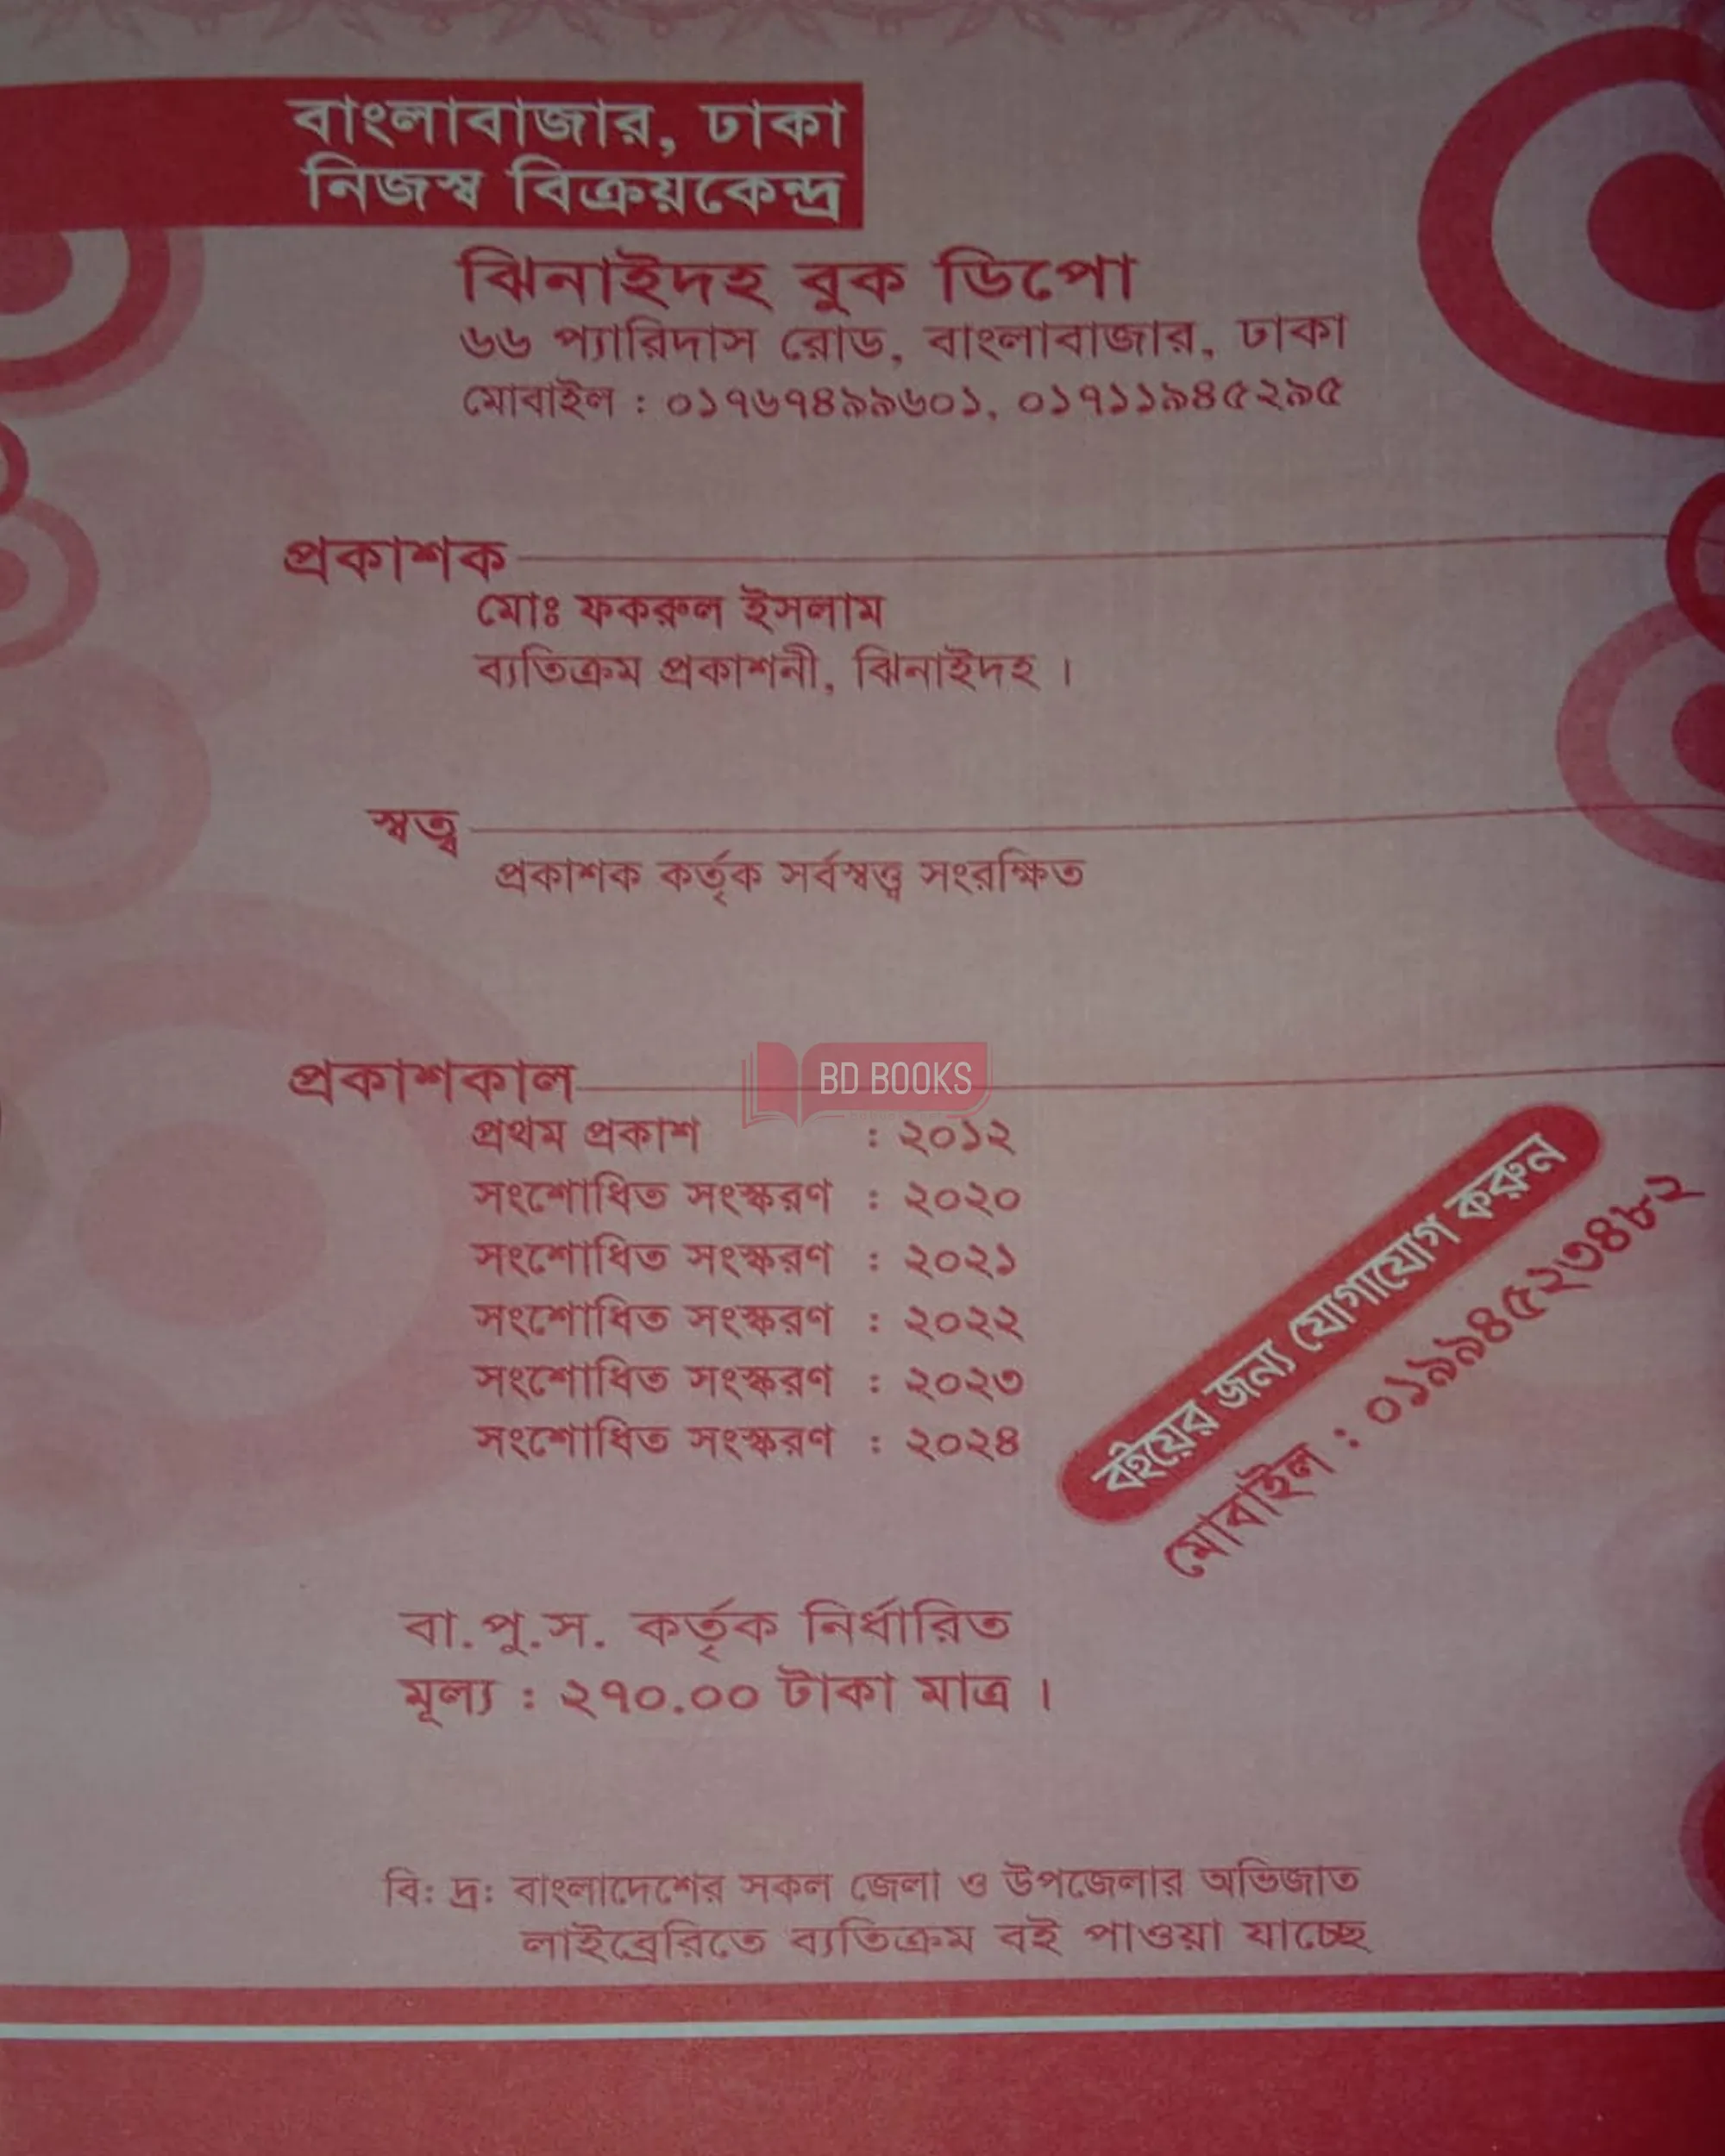 বাংলাবাজার, ঢাকা
নিজস্ব বিক্রয়কেন্দ্র
ঝিনাইদহ বুক ডিপো
৬৬ প্যারিদাস রোড, বাংলাবাজার, ঢাকা
মোবাইল : ০১৭৬৭৪৯৯৬০১, ০১৭১১৯৪৫২৯৫
প্রকাশক
মোঃ ফকরুল ইসলাম
ব্যতিক্রম প্রকাশনী, ঝিনাইদহ ।
স্বত্ব
প্রকাশক কর্তৃক সর্বস্বত্ত্ব সংরক্ষিত
BD BOOKS
প্রকাশকাল
প্রথম প্রকাশ : ২০১২
সংশোধিত সংস্করণ : ২০২০
সংশোধিত সংস্করণ : ২০২১
সংশোধিত সংস্করণ : ২০২২
সংশোধিত সংস্করণ : ২০২৩
সংশোধিত সংস্করণ : ২০২৪
বইয়ের জন্য যোগাযোগ করুন
মোবাইল : ০১৯৯৪৫২৩৪৮২
বা.পু.স. কর্তৃক নির্ধারিত
মূল্য : ২৭০.০০ টাকা মাত্র ।
বি: দ্র: বাংলাদেশের সকল জেলা ও উপজেলার অভিজাত
লাইব্রেরিতে ব্যতিক্রম বই পাওয়া যাচ্ছে